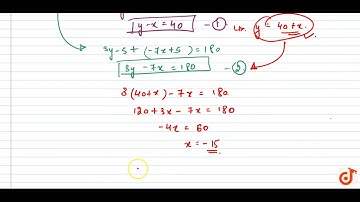 y-x=40 - ① Lie. y = 40+x.
3y-5 + (-7x+5) = 180
3y -7x = 180 - ②
3(40+x) -7x = 180
120 + 3x - 7x = 180
-4x = 60
x = -15